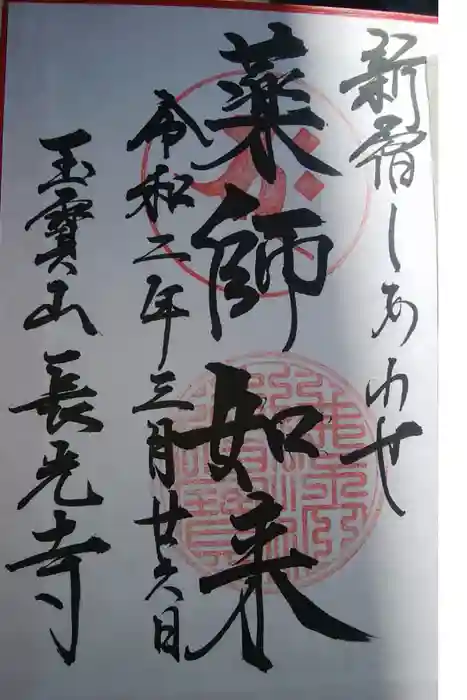 新宿しあわせ
薬師如来
令和二年三月廿六日
玉寶山長光寺